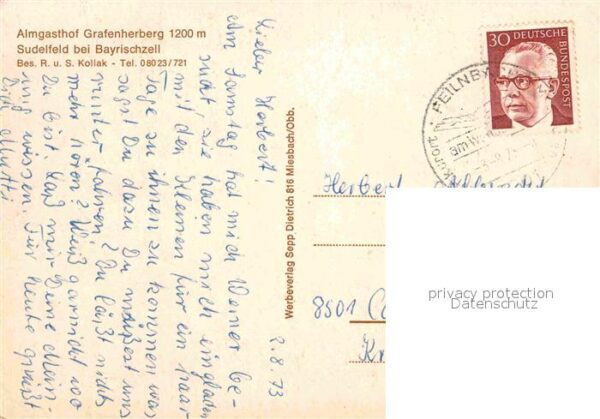 Almgasthof Grafenherberg 1200 m
Sudelfeld bei Bayrischzell
Bes. R. u. S. Kollak - Tel. 08023/721
Lieber Herbert!
Am Samstag hat mich Werner be-
sucht, sie haben mich eingeladen
mit den Kleinen für ein paar
Tage zu ihnen zu kommen was
sagst Du dazu Du müßest uns
runter fahren? Du läßt nichts
mehr hören? Weiß garnicht wo
Du bist. Laß mir Deine Mein-
ung wissen. Für heute grüßt
Dich Mutti
2.8.73
Werbeverlag Sepp Dietrich 816 Miesbach/Obb.
30 DEUTSCHE BUNDESPOST
FEILNB
kurort
am W
Herbert
8501
privacy protection
Datenschutz